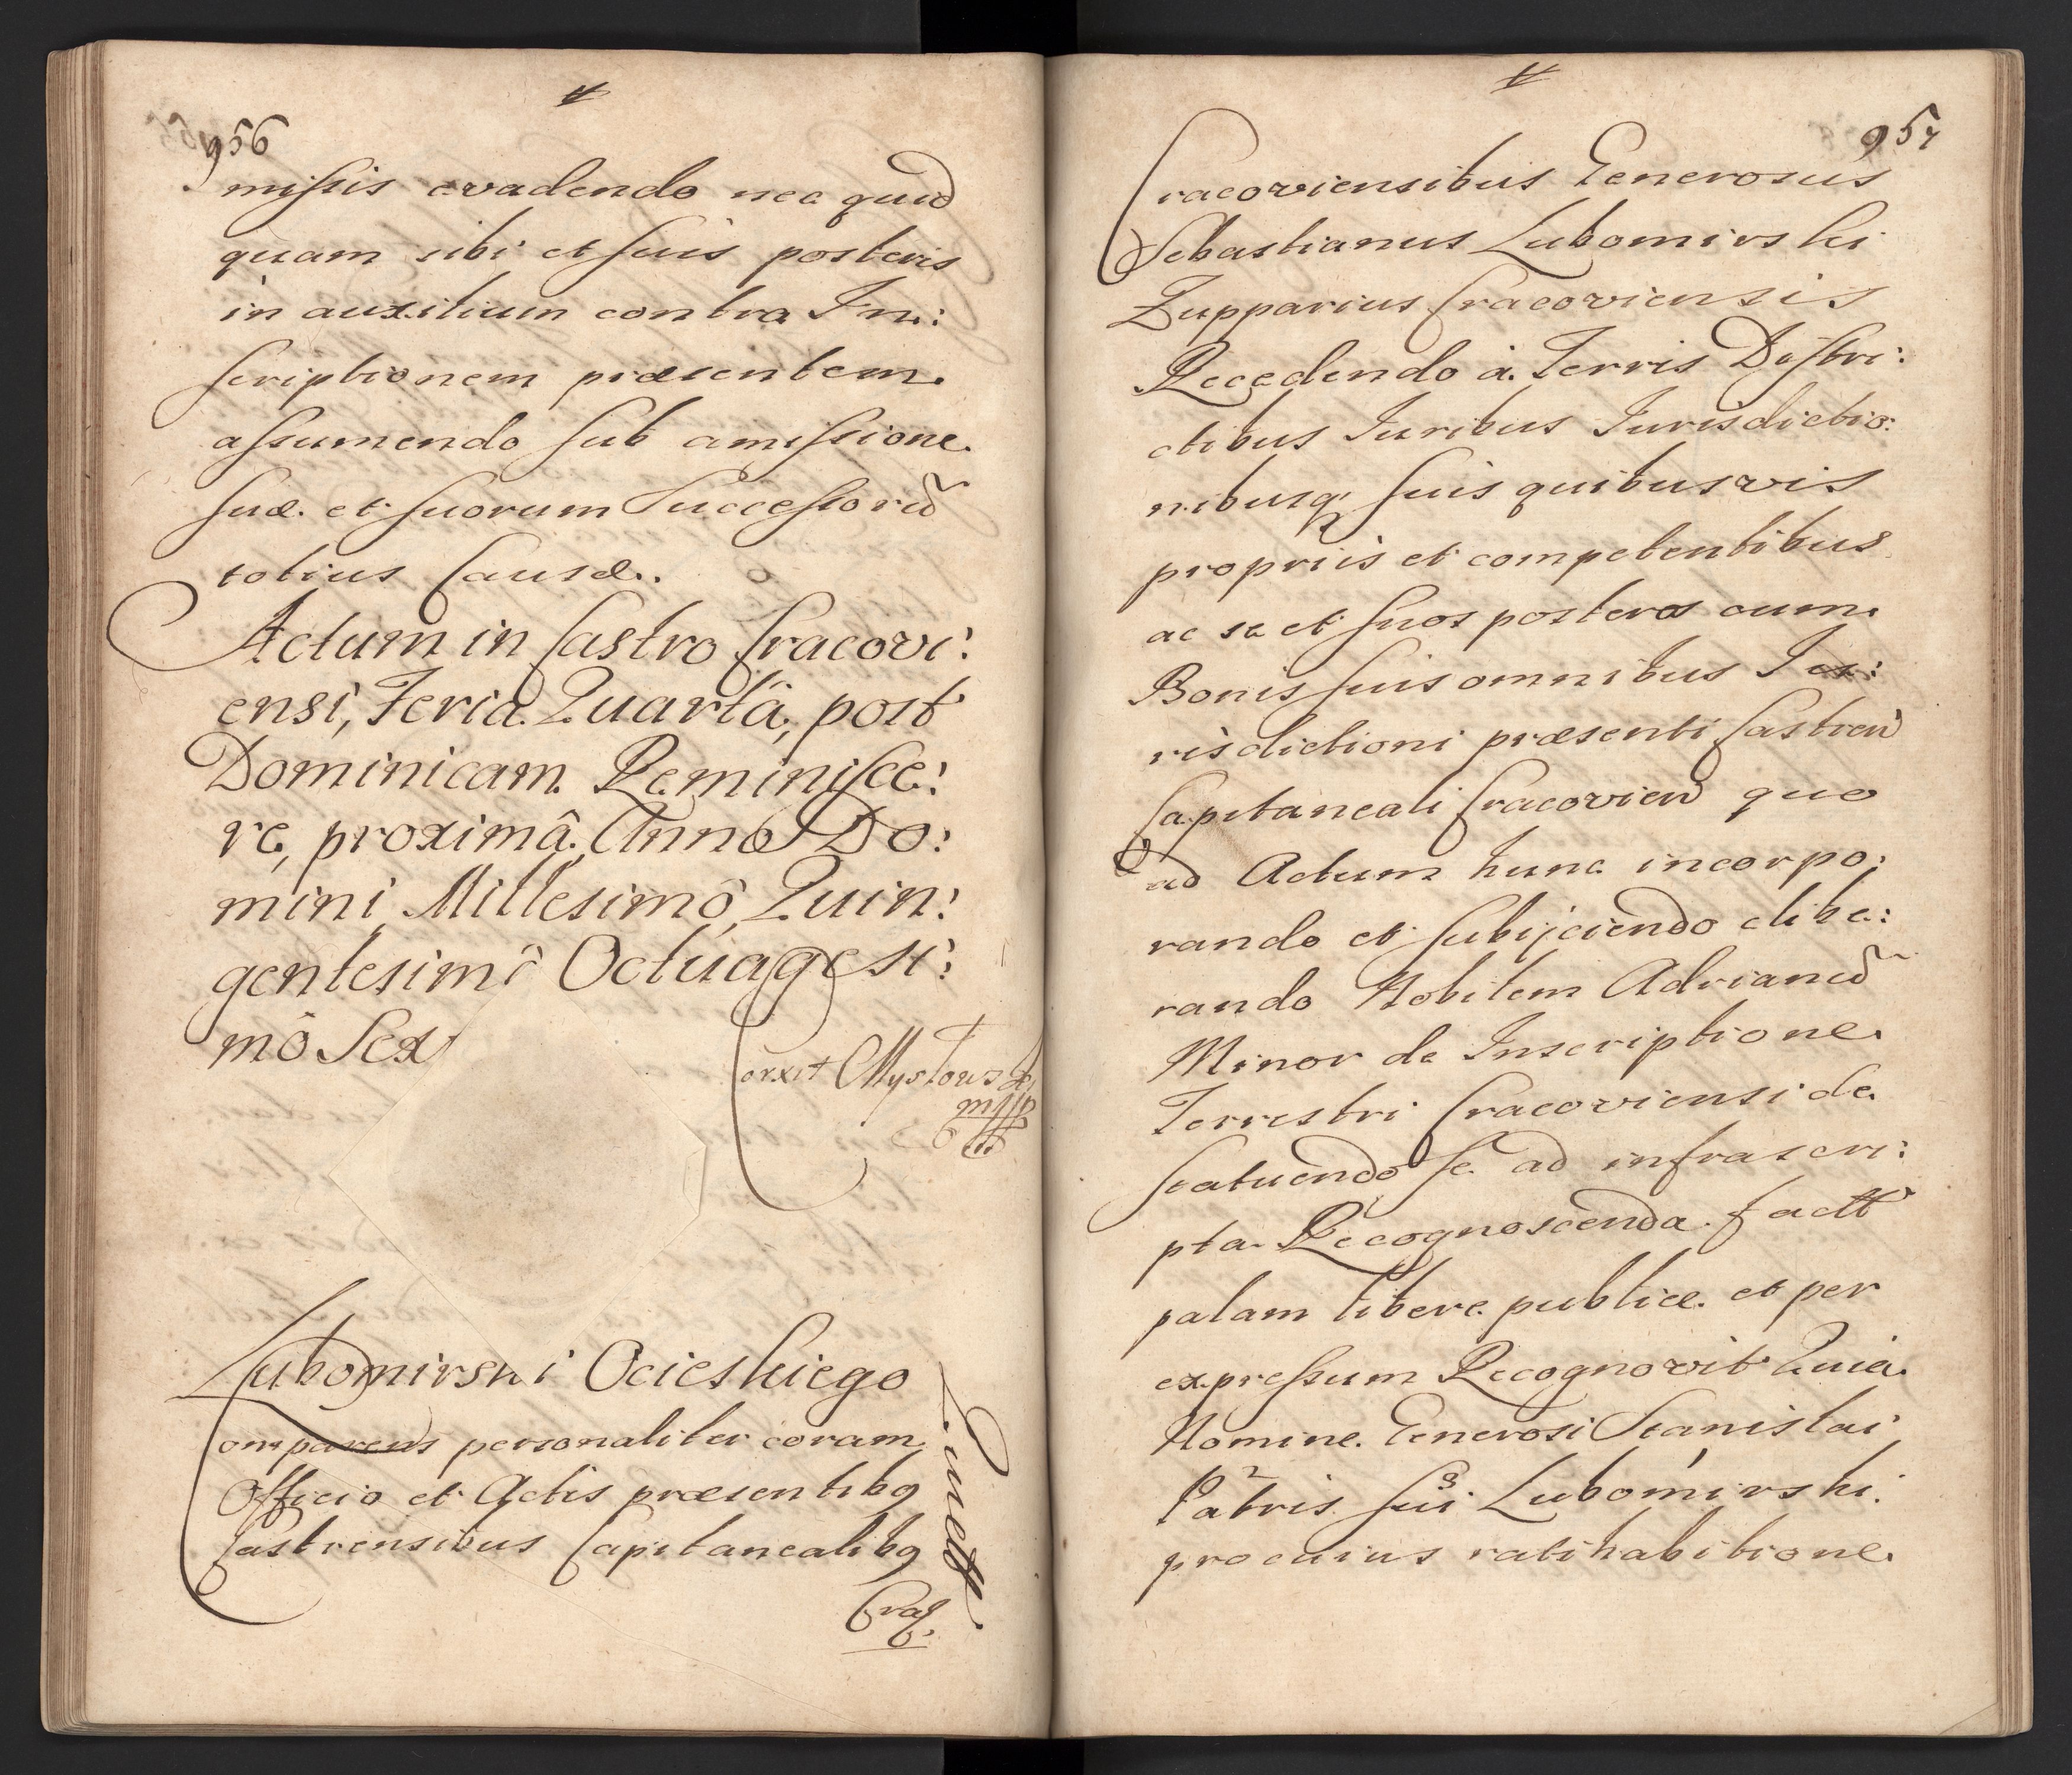 956
missis evadendo nec quid
quam sibi et suis posteris
in auxilium contra In:
scriptionem præsentem
assumendo sub amissione
suæ et suorum Successorũ
totius Causæ.
Actum in Castro Cracovi:
ensi, Feria Quartâ, post
Dominicam Reminisce:
re, proximâ Anno Do:
mini Millesimô Quin:
gentesimô Octuagesi:
mô Sex
Correxit Mystows
mpp
Lubomirski Ocieskiego
Comparens personaliter coram
Officio et Actis præsentibq
Castrensibus Capitanealibq
Crac.
957
Cracoviensibus Generosus
Sebastianus Lubomirski
Zupparius Cracoviensis
Recedendo à Terris Distri:
ctibus Juribus Jurisdictio:
nibusq suis quibusvis
propriis et competentibus
ac se et suos posteros cum
Bonis suis omnibus Ju:
risdictioni præsenti Castren
Capitaneali Cracovien quo
ad Actum hunc incorpo:
rando et subijciendo libe:
rando Nobilem Adrianũ
Minor de Inscriptione
Terrestri Cracoviensi de
statuendo se ad infrascri:
pta Recognoscenda factt
palam libere publice et per
expressum Recognovit Quia
Nomine Generosi Stanislai
Patris sui Lubomirski
pro cuius ratihabitione